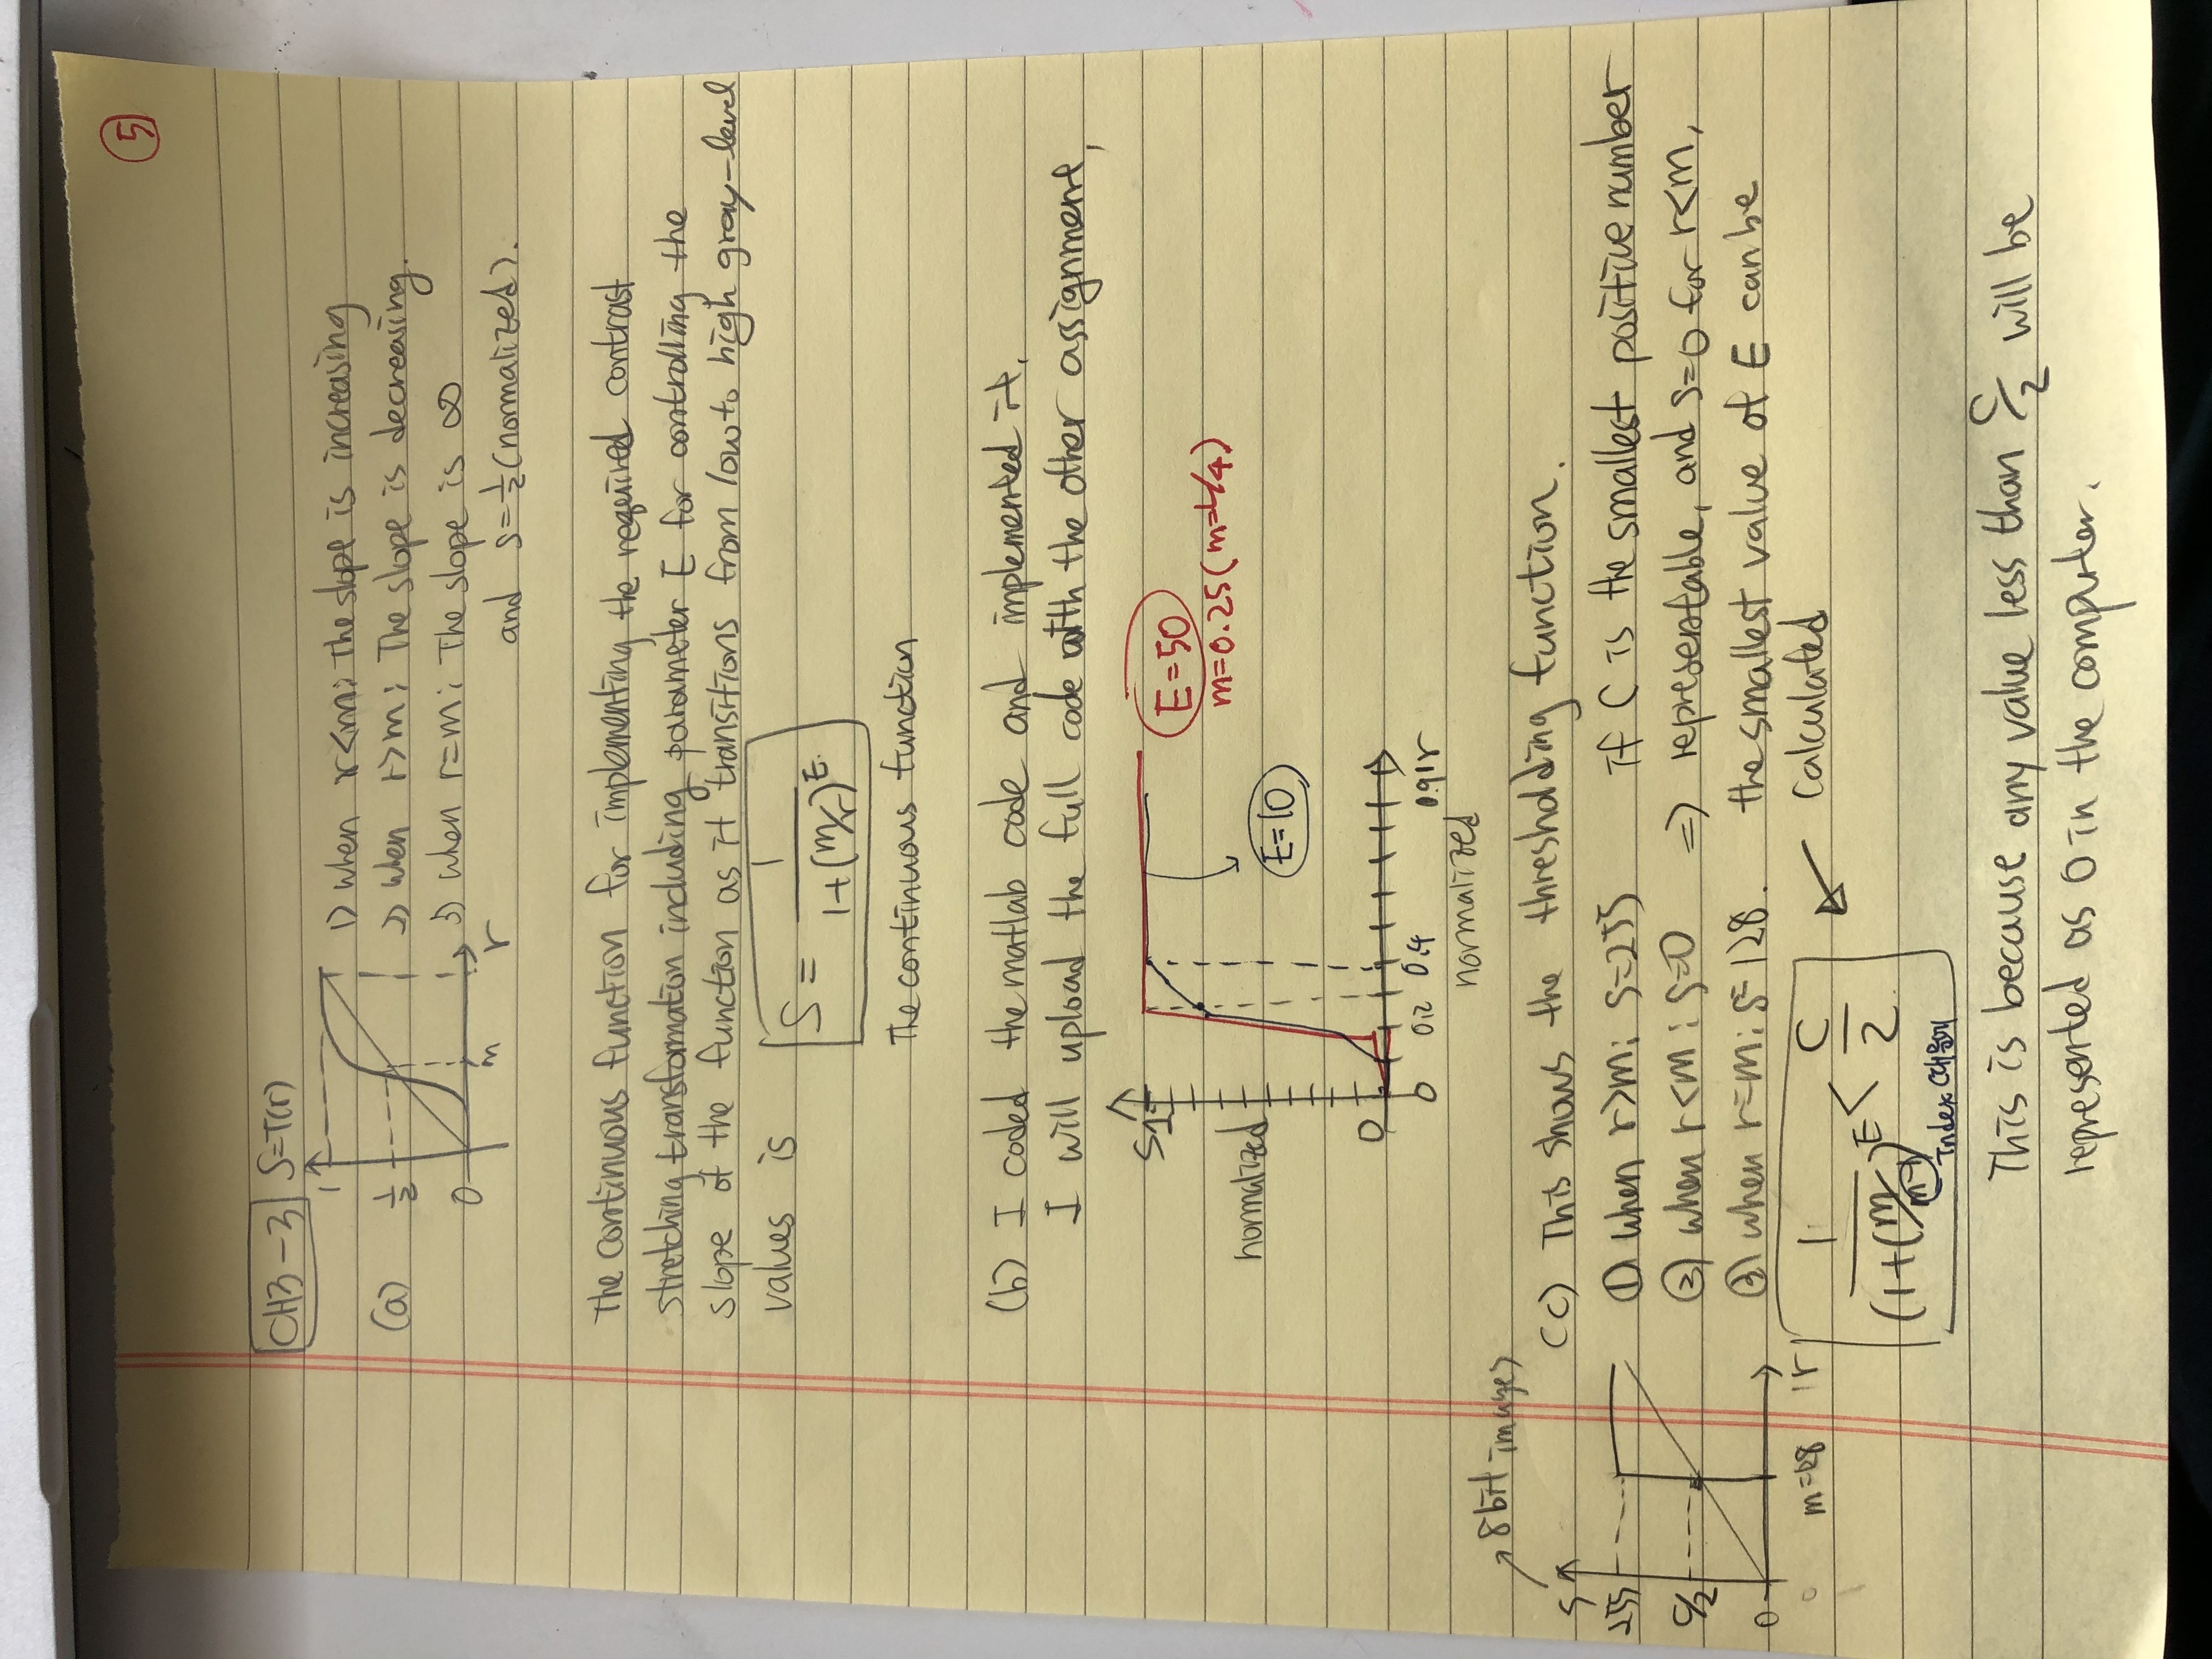 5
CH3-3 S=T(r)
1
(a) 1/2
0
m r
1) when r<m; The slope is increasing
2) when r>m; The slope is decreasing.
3) when r=m; The slope is ∞
and S=1/2 (normalized).
The continuous function for implementing the required contrast
stretching transformation including parameter E for controlling the
slope of the function as it transitions from low to high gray-level
values is
S = 1/(1+(m/r)^E)
The continuous function
(b) I coded the matlab code and implemented it.
I will upload the full code with the other assignment,
S1
E=50
m=0.25(m=L/4)
normalized
E=10
0
0 0.2 0.4 0.91 r
normalized
8bit images
(c) This shows the thresholding function.
S
255
C/2
0
m=128 r
① when r>m; S=255
② when r<m; S=0
③ when r=m; S=128.
if C is the smallest positive number
⇒ representable, and S=0 for r<m,
the smallest value of E can be
calculated
1/(1+(m/m-1)^E < C/2
Index 때문에
This is because any value less than C/2 will be
represented as 0 in the computer.